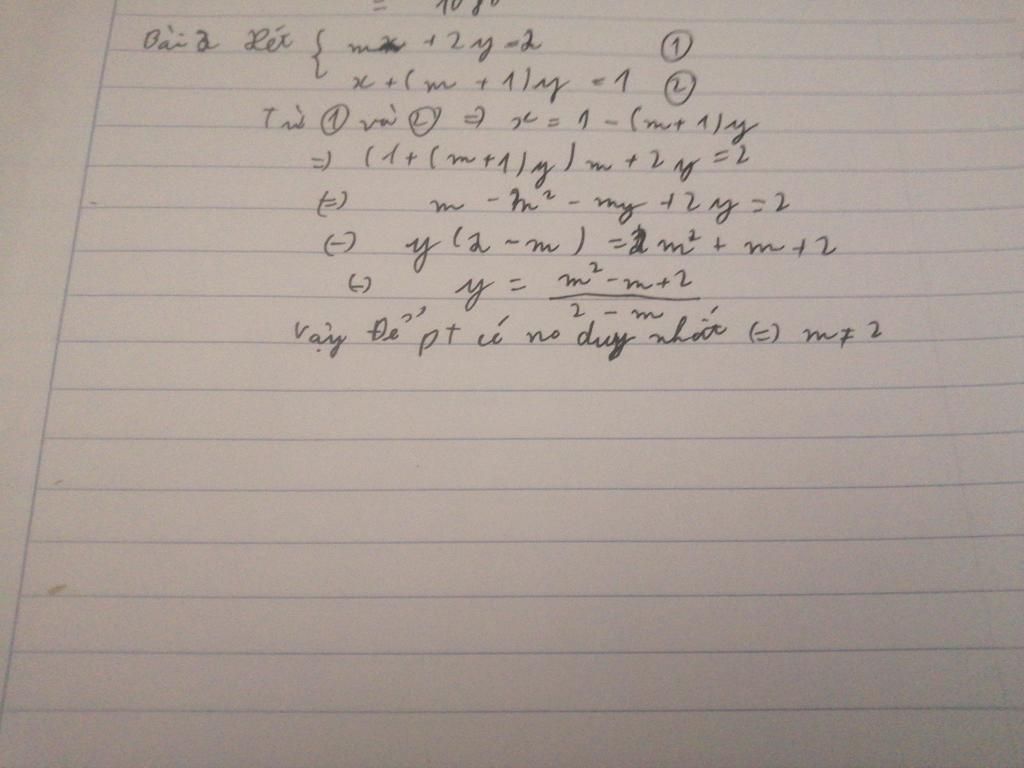 =
Bài 2 Xét { mx + 2y = 2 ①
x + (m + 1)y = 1 ②
Từ ① và ② => x = 1 - (m + 1)y
=> (1 + (m + 1)y)m + 2y = 2
(=) m - m² - my + 2y = 2
(=) y(2 - m) = m² + m + 2
(=) y = \frac{m² - m + 2}{2 - m}
Vậy Để pt có no duy nhất (=) m ≠ 2